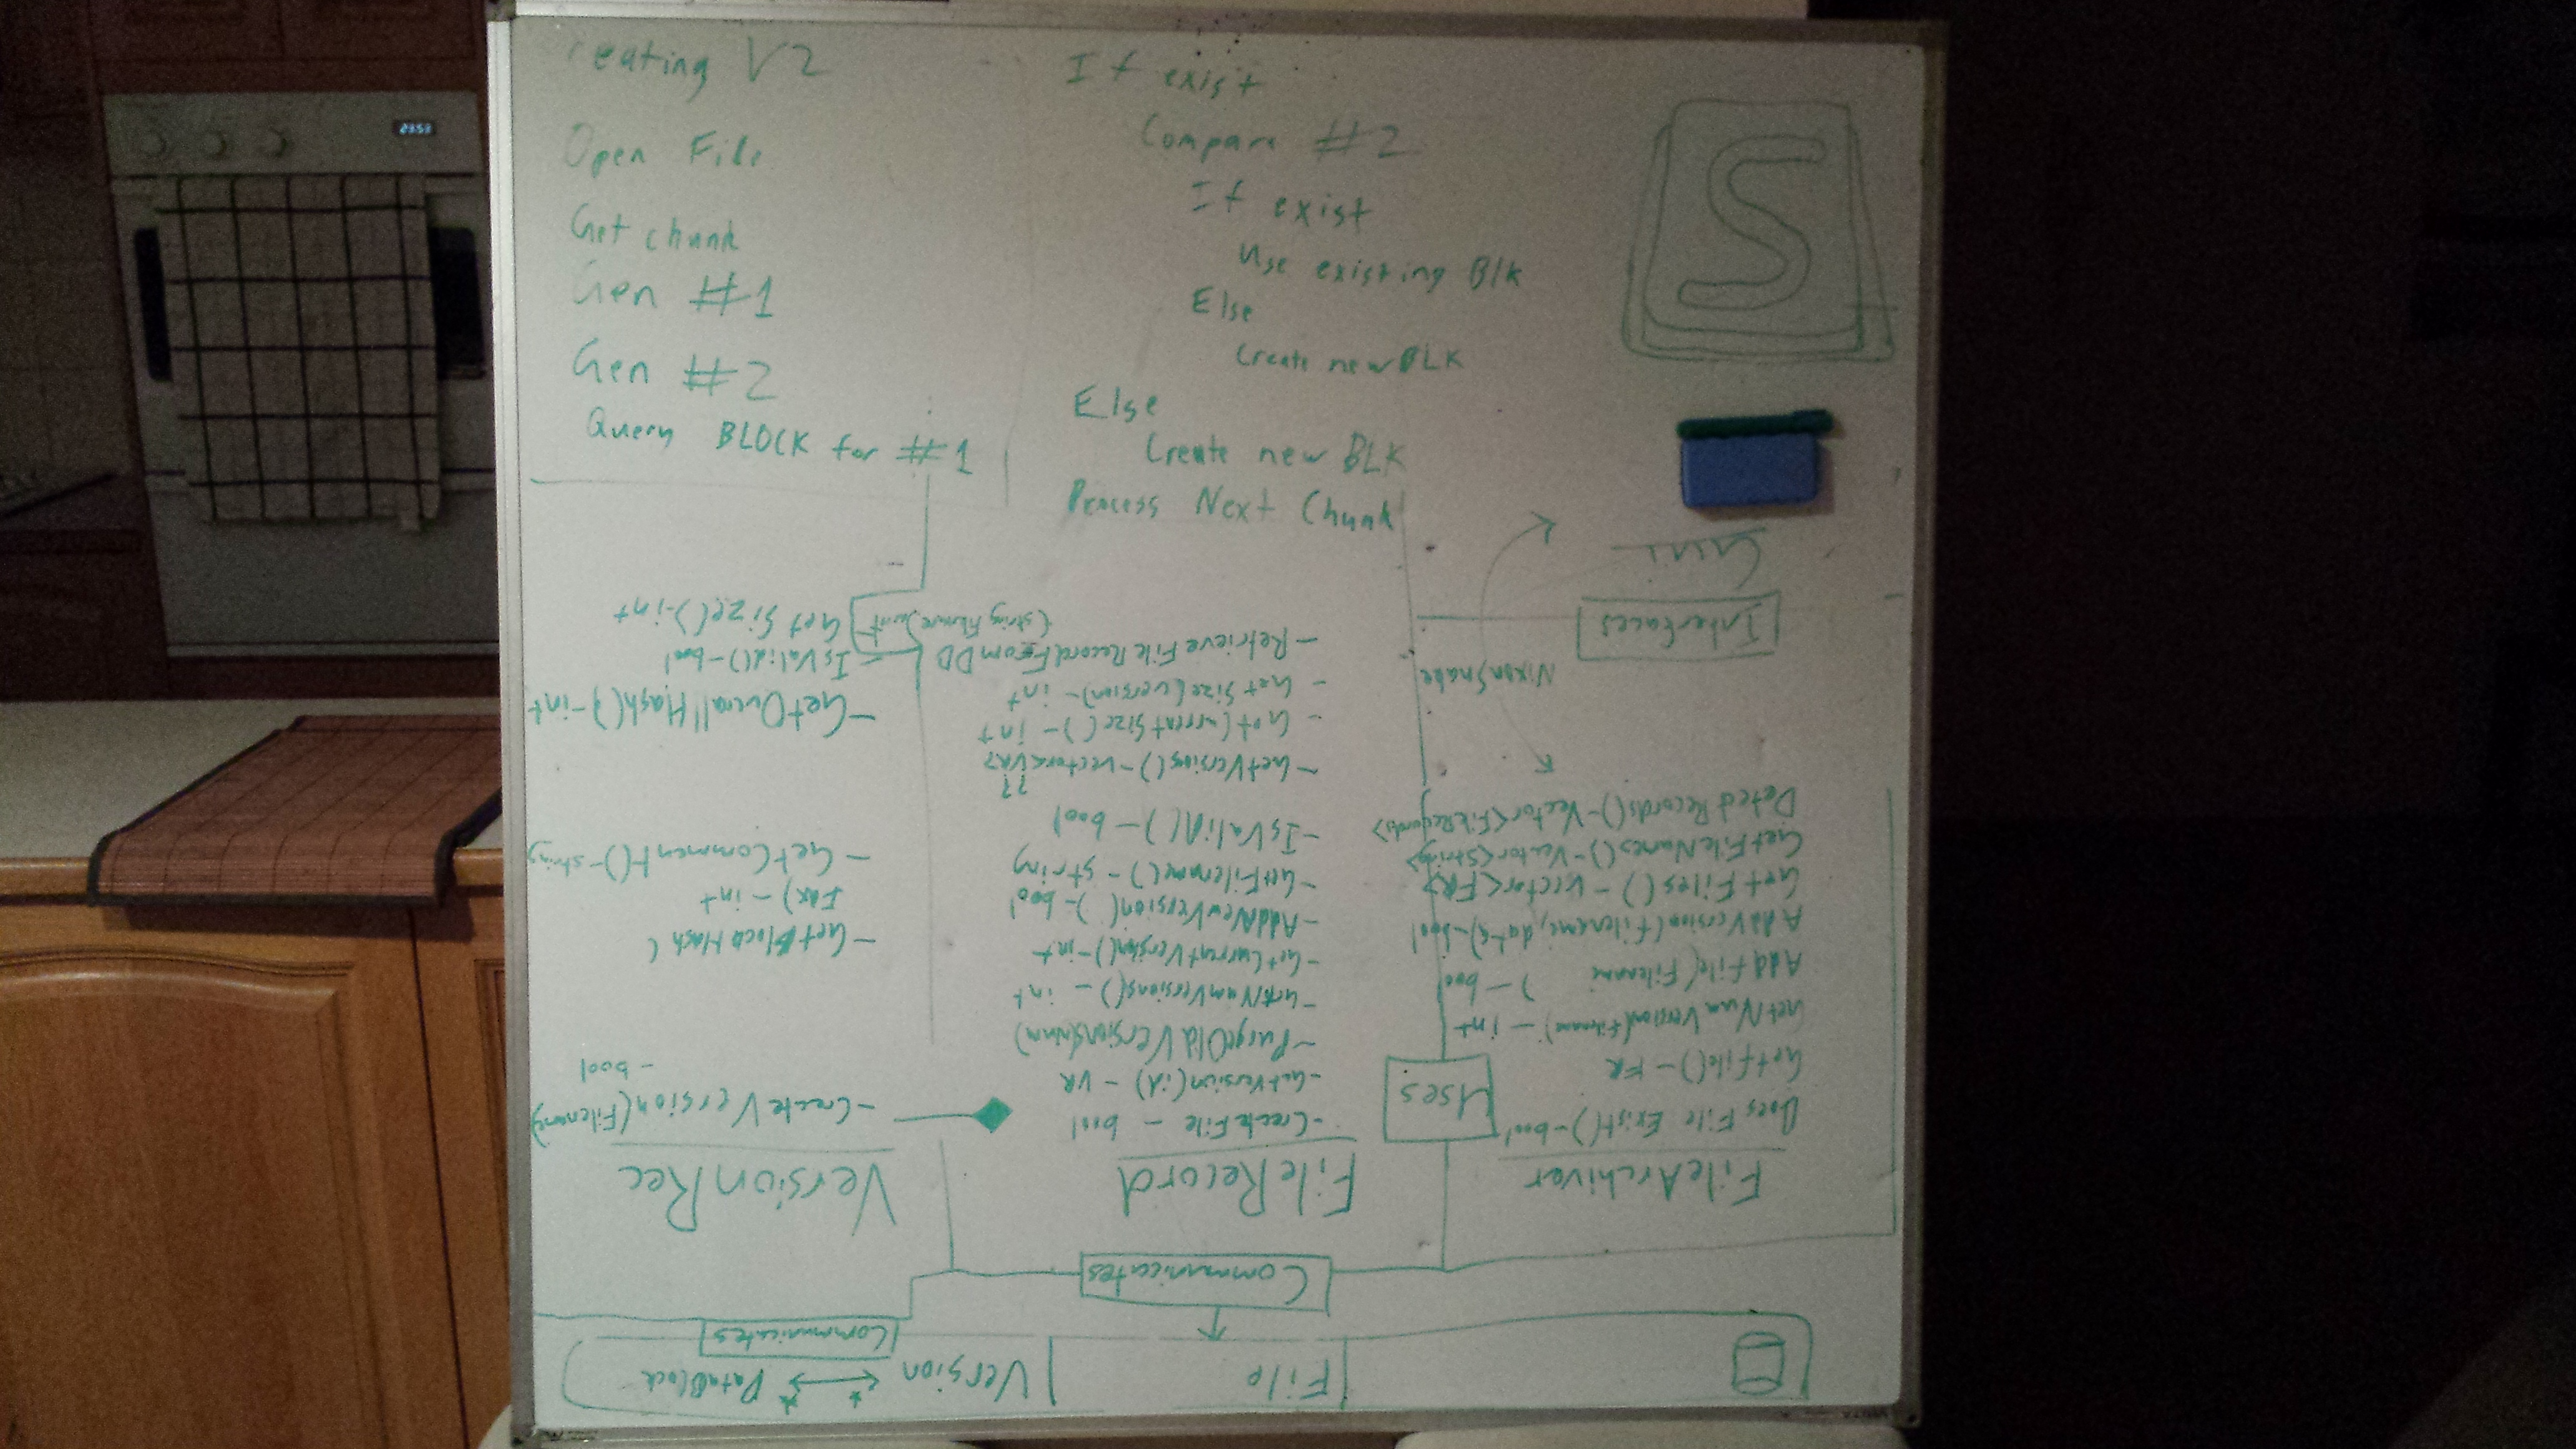 reating V2
Open File
Get chunk
Gen #1
Gen #2
Query BLOCK for #1
If exist
Compare #2
If exist
Use existing Blk
Else
Create new BLK
Else
Create new BLK
Process Next Chunk
S
2353
File
Version
DataBlock
Communicates
Communicates
FileArchiver
Does File Exist()-bool
GetFile() - FR
GetNumVersion(Filename) - int
AddFile(Filename ) - bool
AddVersion(Filename, data)-bool
GetFiles() - Vector<FR>
GetFileNames()-Vector<String>
Records()-Vector<FileRecords>
Uses
NixonSnake
Interfaces
FileRecord
-CreateFile - bool
-GetVersion(id) - VR
-PurgeOldVersions(num)
-GetNumVersions() - int
-GetCurrentVersion()-int
-AddNewVersion( )-bool
-GetFilename() - string
-IsValid() - bool
??
-GetVersions()-vector<VR>
-GetCurrentSize() - int
-GetSize(version) - int
-RetrieveFileRecordFromDD
(string filename)
VersionRec
-CreateVersion(Filename)
- bool
-GetBlockHash(
Idx) - int
-GetComment()-string
-GetOverallHash()-int
IsValid()-bool
Get Size()-int